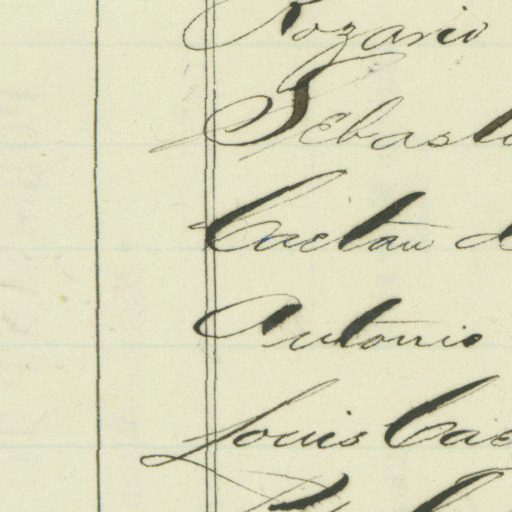 Rozario
Sebasti
Caetan d
Antonio
Louis Cae